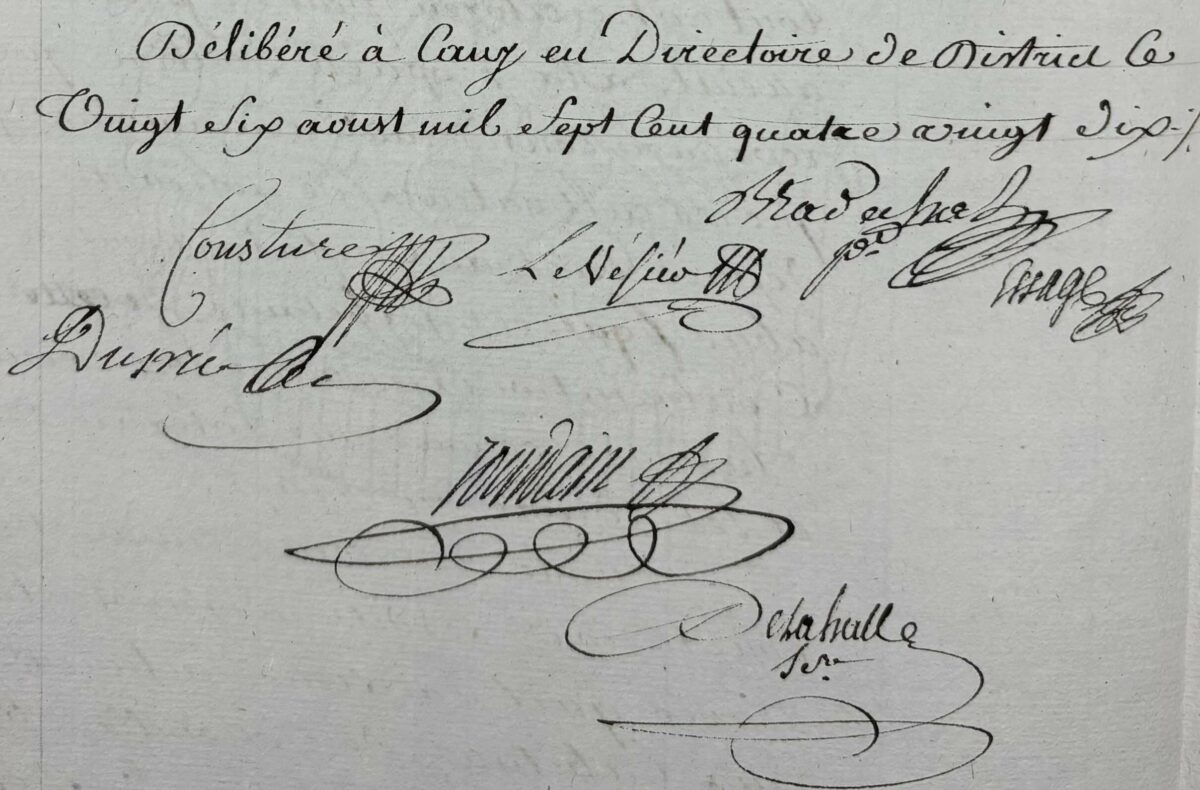 Délibéré à Cany en Directoire de District Le
Vingt Six aoust mil Sept Cent quatre vingt dix ./.
Cousture Le Vésiéo
pdt
Lesage
Duprié
Jourdain
Delahalle
Sere